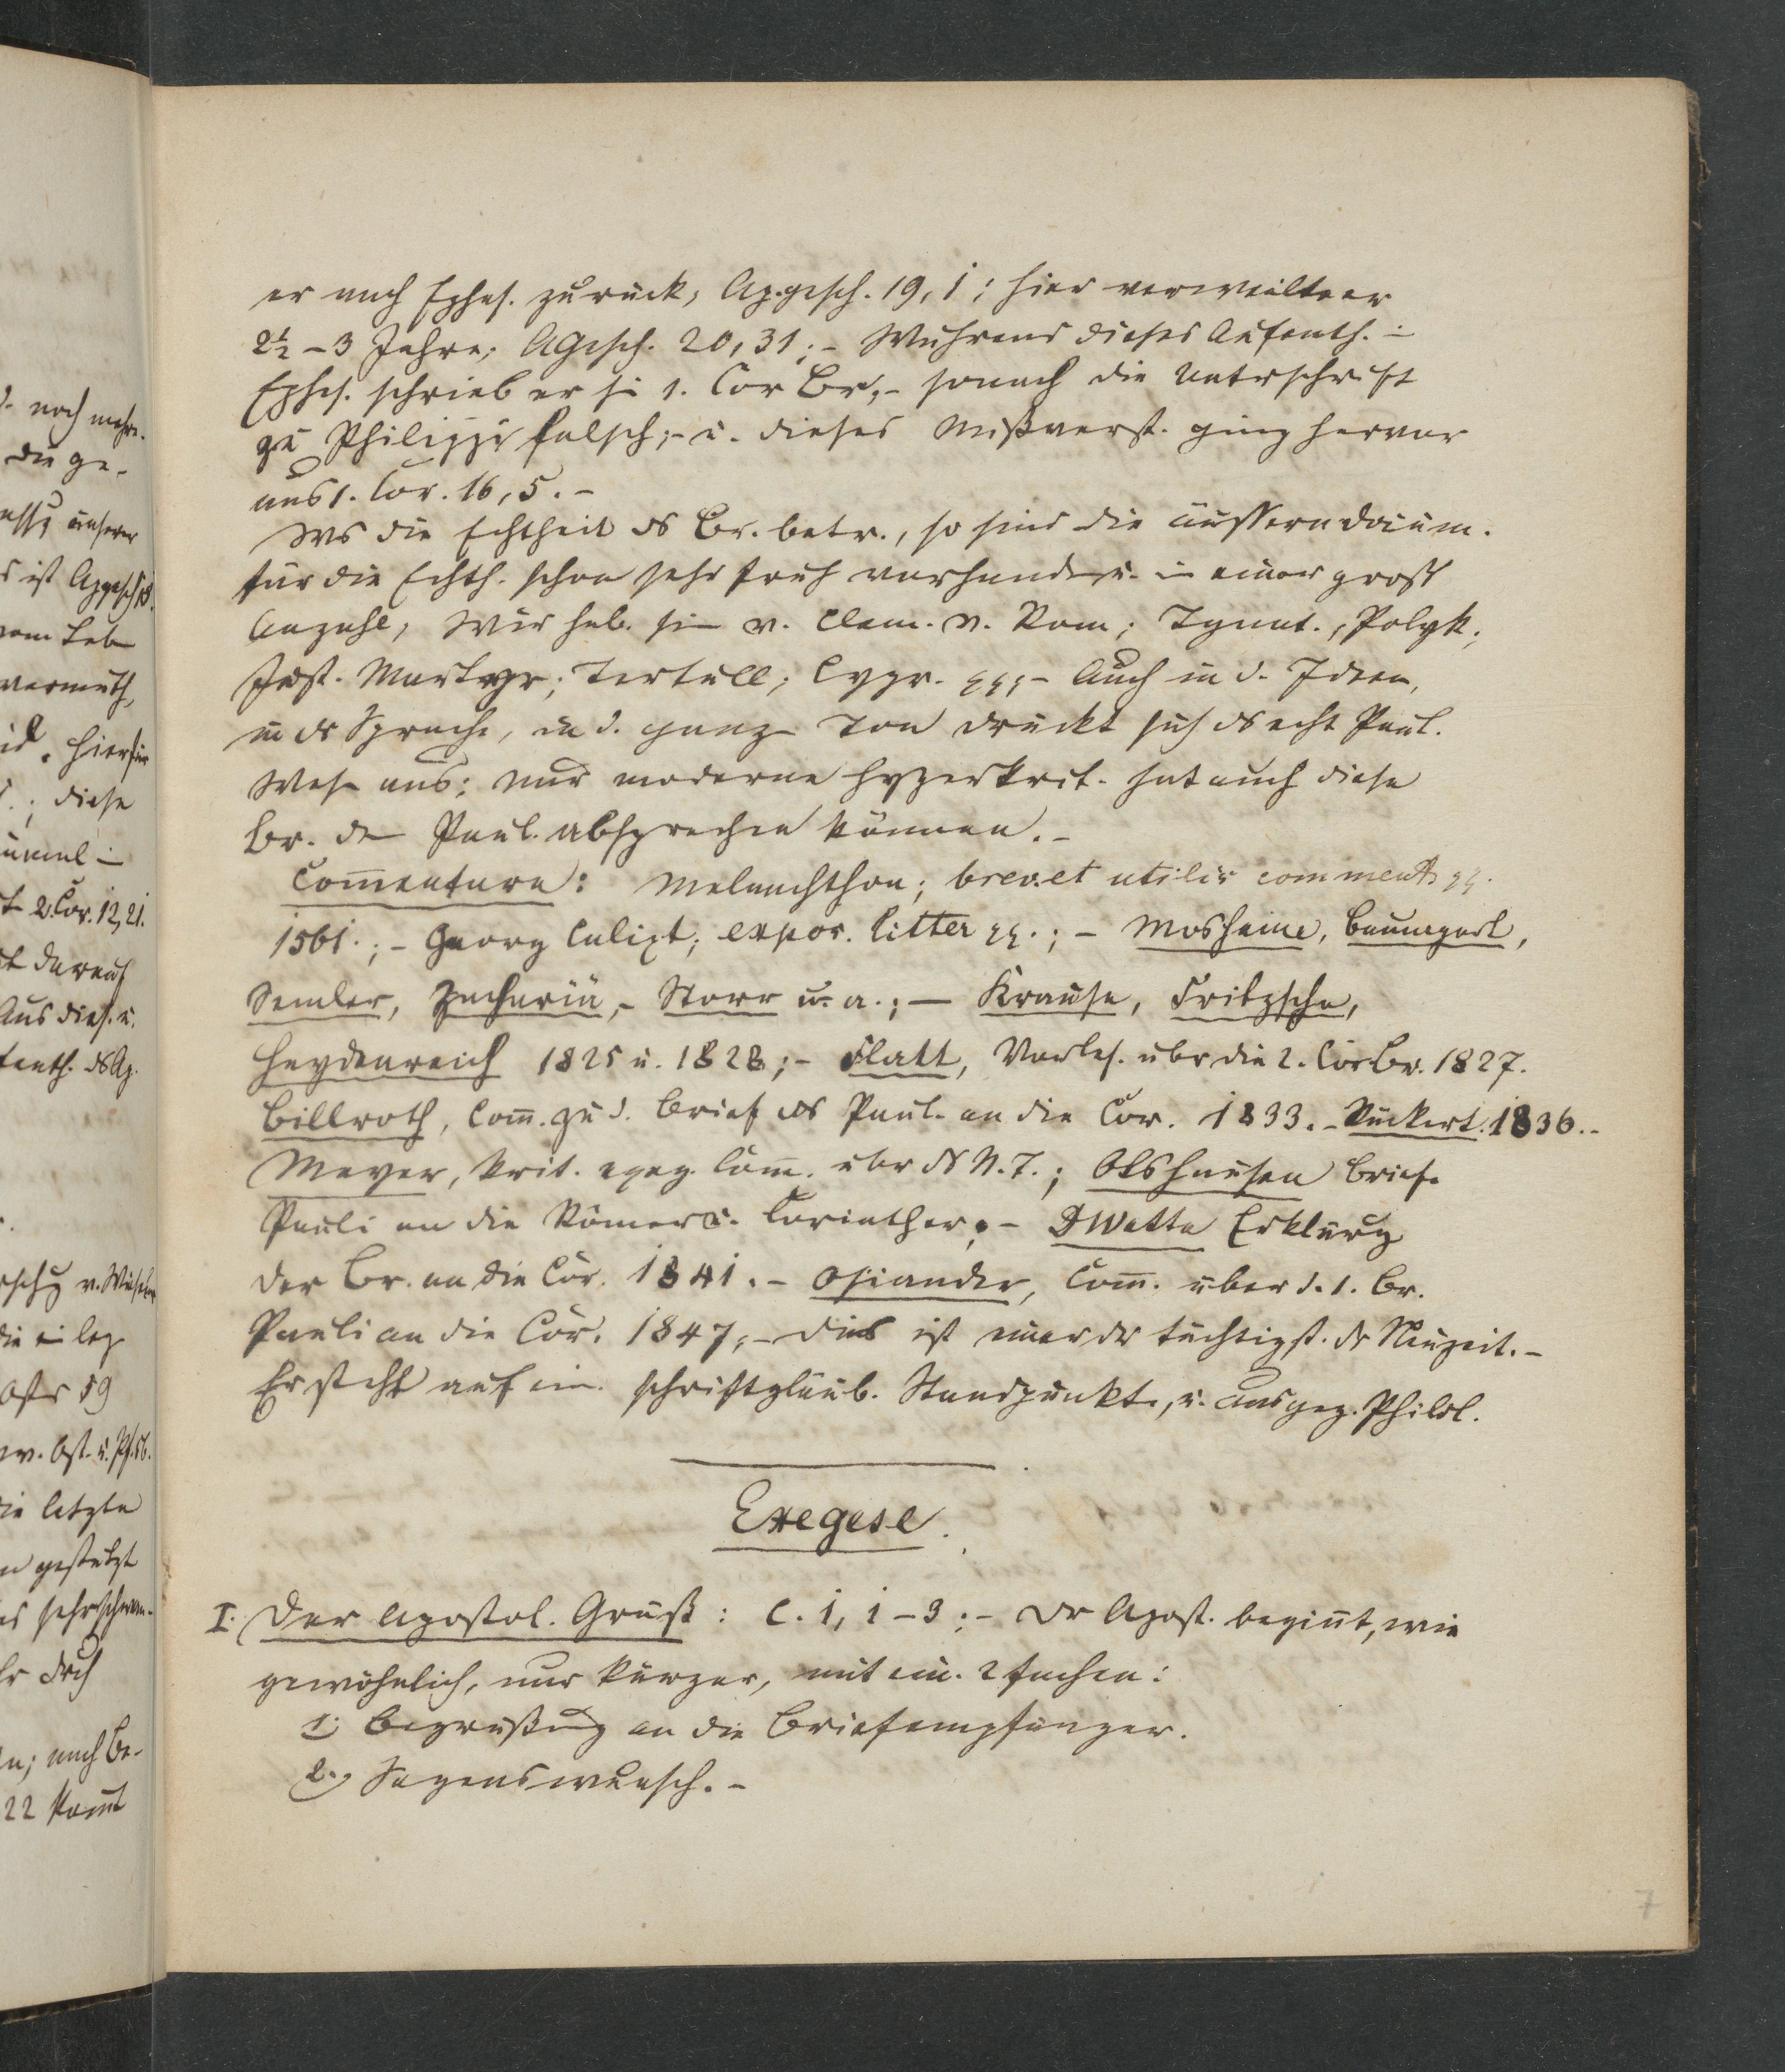 er nach Ephes. zurück, Ap.gesch. 19, 1; hier verweilte er
2½ – 3 Jahre, AGesch. 20, 31; – Während dieses Aufenth. in
Ephes. schrieb er sn 1. Cor Br, – sonach die Unterschrift
zu Philippi falsch; – u. dieses Mißverst. ging hervor
aus 1. Cor. 16, 5. –
Was die Echtheit ds Br. betr., so sind die äussern docum.
für die Echth. schon sehr früh vorhanden u. in einer gross
Anzahl; Wir hab. sie v. Clem. v. Rom; Ignat., Polyk,
Just. Martyr; Tertull; Cypr. – Auch in d. Ideen,
in dr Sprache, in d. ganz Ton drückt sich ds echt Paul.
Wesen aus; nur moderne Hyperkrit. hat auch diese
Br. dem Paul. absprechen können. –
Com̄entare: Melanchthon; brev. et utilis comment.
1561.; – Georg Calixt; expos. litter.; – Mosheim, Baumgart,
Semler, Zachariä, – Storr u. a.; – Krause, Fritzsche,
Heydenreich 1825 u. 1828; – Flatt, Vorles. übr die 2. Cor Br. 1827.
Billroth, Com̄. zu d. Brief. ds Paul. an die Cor. 1833. – Rückert. 1836. –
Meyer, krit. exeg. Com̄. übr ds N. T.; Olshausen Briefe
Pauli an die Römer u. Corinther; – DWette Erklärg
der Br. an die Cor. 1841. – Osiander, Com̄. über d. 1. Br.
Pauli an die Cor. 1847, – dies ist einer dr tüchtigst. dr Neuzeit. –
Er steht auf ein. schriftgläub. Standpunkte, u. ausgez. Philol.
Exegese.
I. Der Apostol. Gruß: C. 1, 1 – 3; – Dr Apost. begin̄t, wie
gewöhnlich, nur kürzer, mit ein. 2fachen:
1.) Begrüßung an die Briefempfänger.
2.) Segenswunsch. –
7